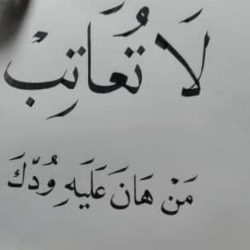 لَا تُعَاتِبْ
مَنْ هَانَ عَلَيهِ وُدّكَ